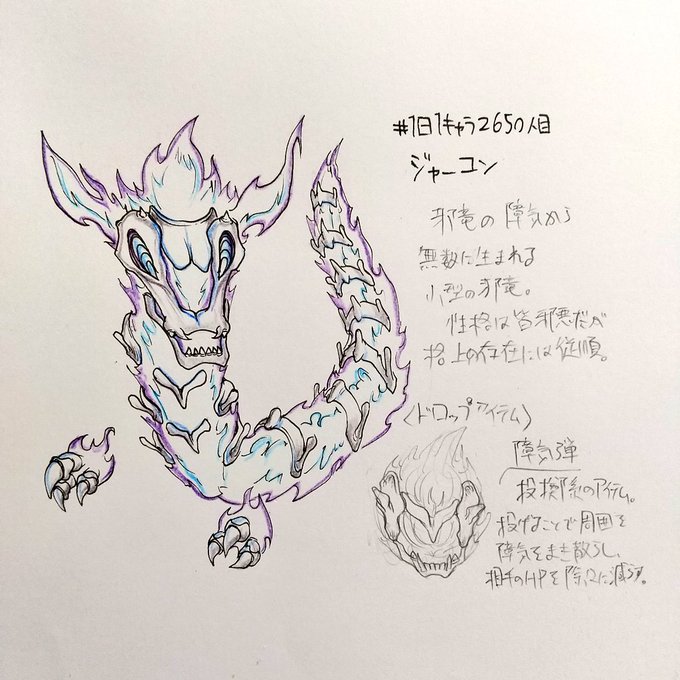 #1日1キャラ2650人目
ジャーコン
邪竜の障気から
無数に生まれる
小型の邪竜。
性格は皆邪悪だが
格上の存在には従順。
〈ドロップアイテム〉
障気弾
投擲系のアイテム。
投げることで周囲を
障気をまき散らし、
相手のHPを徐々に減らす。